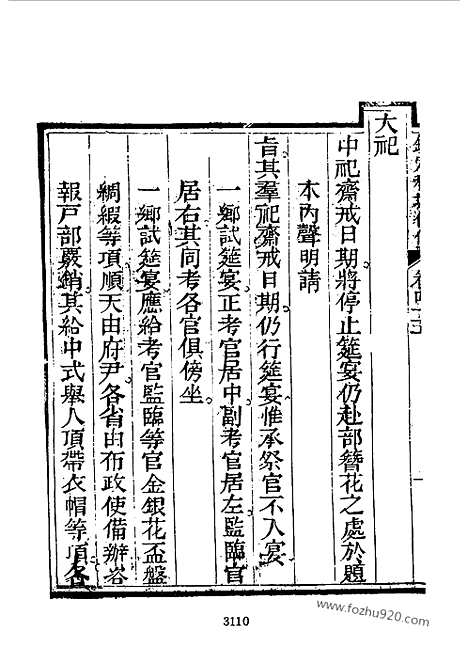 大祀
中祀齋戒日期將停止筵宴仍赴部簪花之處於題
本內聲明請
旨其羣祀齋戒日期仍行筵宴惟承祭官不入宴
一鄉試筵宴正考官居中副考官居左監臨官
居右其同考各官俱傍坐
一鄉試筵宴應給考官監臨等官金銀花盃盤
綢緞等項順天由府尹各省由布政使備辦咨
報戸部覈銷其給中式舉人頂帶衣帽等項各
3110
www.fozhu920.com